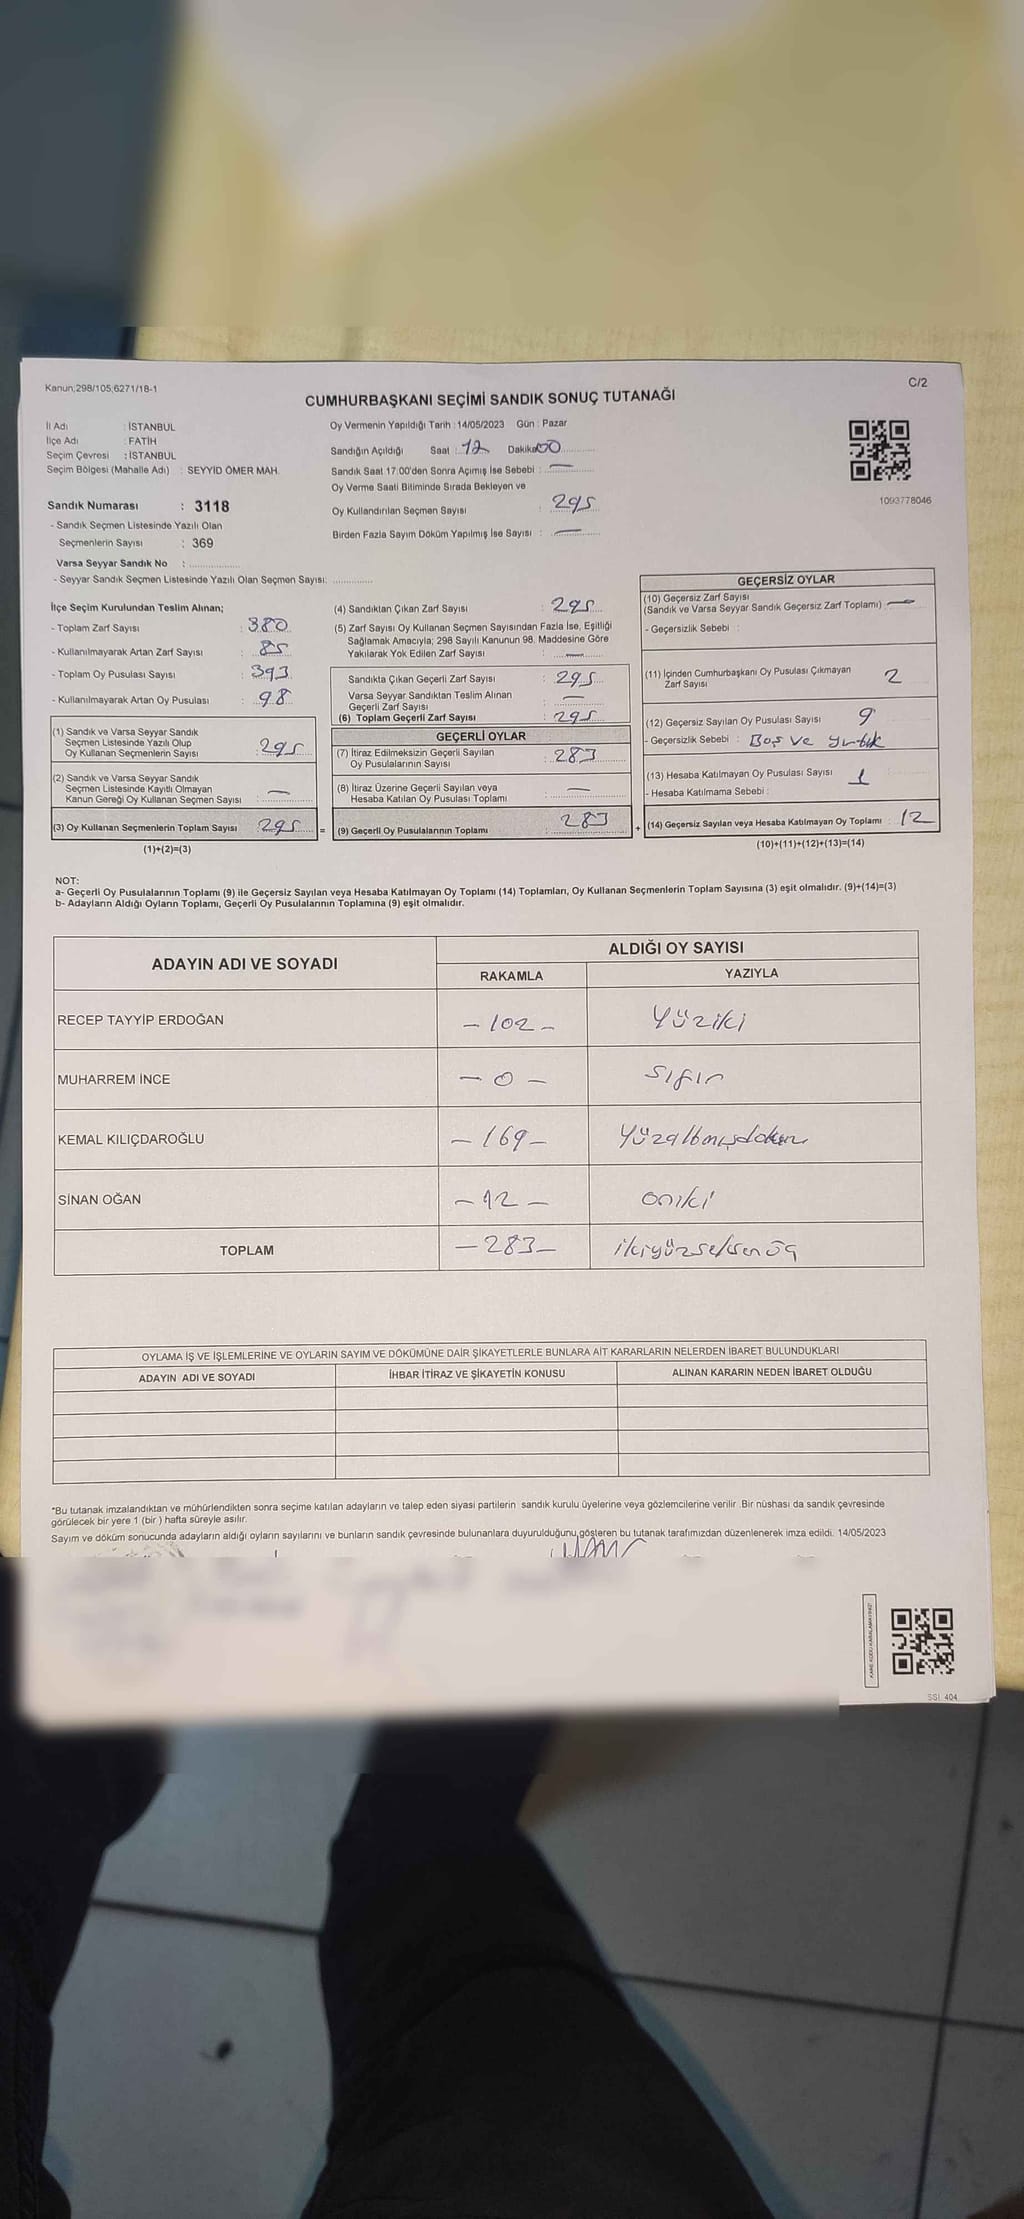 Kanun;298/105;6271/18-1
C/2
CUMHURBAŞKANI SEÇİMİ SANDIK SONUÇ TUTANAĞI
İl Adı : İSTANBUL
İlçe Adı : FATİH
Seçim Çevresi : İSTANBUL
Seçim Bölgesi (Mahalle Adı) : SEYYİD ÖMER MAH.
Sandık Numarası : 3118
- Sandık Seçmen Listesinde Yazılı Olan
Seçmenlerin Sayısı : 369
Varsa Seyyar Sandık No :
- Seyyar Sandık Seçmen Listesinde Yazılı Olan Seçmen Sayısı:
Oy Vermenin Yapıldığı Tarih : 14/05/2023 Gün : Pazar
Sandığın Açıldığı Saat : 12 Dakika 00
Sandık Saat 17:00'den Sonra Açımış İse Sebebi : —
Oy Verme Saati Bitiminde Sırada Bekleyen ve
Oy Kullandırılan Seçmen Sayısı : 295
Birden Fazla Sayım Döküm Yapılmış İse Sayısı : —
1093778046
İlçe Seçim Kurulundan Teslim Alınan;
- Toplam Zarf Sayısı : 380
- Kullanılmayarak Artan Zarf Sayısı : 85
- Toplam Oy Pusulası Sayısı : 393
- Kullanılmayarak Artan Oy Pusulası : 98
(1) Sandık ve Varsa Seyyar Sandık
Seçmen Listesinde Yazılı Olup
Oy Kullanan Seçmenlerin Sayısı : 295
(2) Sandık ve Varsa Seyyar Sandık
Seçmen Listesinde Kayıtlı Olmayan
Kanun Gereği Oy Kullanan Seçmen Sayısı : —
(3) Oy Kullanan Seçmenlerin Toplam Sayısı : 295
(1)+(2)=(3)
(4) Sandıktan Çıkan Zarf Sayısı : 295
(5) Zarf Sayısı Oy Kullanan Seçmen Sayısından Fazla İse, Eşitliği
Sağlamak Amacıyla; 298 Sayılı Kanunun 98. Maddesine Göre
Yakılarak Yok Edilen Zarf Sayısı : —
Sandıkta Çıkan Geçerli Zarf Sayısı : 295
Varsa Seyyar Sandıktan Teslim Alınan
Geçerli Zarf Sayısı : —
(6) Toplam Geçerli Zarf Sayısı : 295
GEÇERLİ OYLAR
(7) İtiraz Edilmeksizin Geçerli Sayılan
Oy Pusulalarının Sayısı : 283
(8) İtiraz Üzerine Geçerli Sayılan veya
Hesaba Katılan Oy Pusulası Toplamı : —
= (9) Geçerli Oy Pusulalarının Toplamı : 283
GEÇERSİZ OYLAR
(10) Geçersiz Zarf Sayısı
(Sandık ve Varsa Seyyar Sandık Geçersiz Zarf Toplamı) : —
- Geçersizlik Sebebi :
(11) İçinden Cumhurbaşkanı Oy Pusulası Çıkmayan
Zarf Sayısı 2
(12) Geçersiz Sayılan Oy Pusulası Sayısı 9
- Geçersizlik Sebebi : Boş ve yırtık
(13) Hesaba Katılmayan Oy Pusulası Sayısı 1
- Hesaba Katılmama Sebebi :
+ (14) Geçersiz Sayılan veya Hesaba Katılmayan Oy Toplamı : 12
(10)+(11)+(12)+(13)=(14)
NOT:
a- Geçerli Oy Pusulalarının Toplamı (9) ile Geçersiz Sayılan veya Hesaba Katılmayan Oy Toplamı (14) Toplamları, Oy Kullanan Seçmenlerin Toplam Sayısına (3) eşit olmalıdır. (9)+(14)=(3)
b- Adayların Aldığı Oyların Toplamı, Geçerli Oy Pusulalarının Toplamına (9) eşit olmalıdır.
ADAYIN ADI VE SOYADI ALDIĞI OY SAYISI
RAKAMLA YAZIYLA
RECEP TAYYİP ERDOĞAN - 102 - Yüziki
MUHARREM İNCE - 0 - sıfır
KEMAL KILIÇDAROĞLU - 169 - Yüzaltmışdokuz
SİNAN OĞAN - 12 - oniki
TOPLAM - 283 - ikiyüzseksenüç
OYLAMA İŞ VE İŞLEMLERİNE VE OYLARIN SAYIM VE DÖKÜMÜNE DAİR ŞİKAYETLERLE BUNLARA AİT KARARLARIN NELERDEN İBARET BULUNDUKLARI
ADAYIN ADI VE SOYADI İHBAR İTİRAZ VE ŞİKAYETİN KONUSU ALINAN KARARIN NEDEN İBARET OLDUĞU
*Bu tutanak imzalandıktan ve mühürlendikten sonra seçime katılan adayların ve talep eden siyasi partilerin sandık kurulu üyelerine veya gözlemcilerine verilir. Bir nüshası da sandık çevresinde
görülecek bir yere 1 (bir) hafta süreyle asılır.
Sayım ve döküm sonucunda adayların aldığı oyların sayılarını ve bunların sandık çevresinde bulunanlara duyurulduğunu gösteren bu tutanak tarafımızdan düzenlenerek imza edildi. 14/05/2023
KARE KODU KARALAMAYINIZ!
SSI: 404